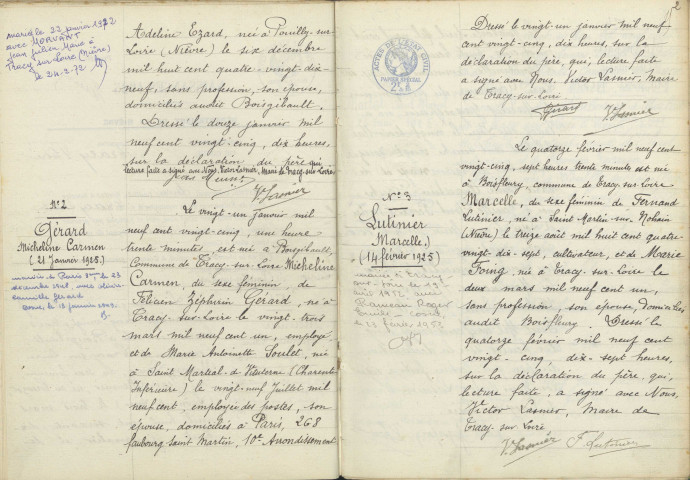 marié le 22 janvier 1972
avec MORVANT
Jean Julien Marie à
Tracy sur Loire (Nièvre)
le 24.2.72
Adeline Ezard, née à Pouilly-sur
Loire (Nièvre) le six décembre
mil huit cent quatre-vingt-dix-
neuf, sans profession, son épouse,
domiciliés audit Boisgibault.
Dressé le douze janvier mil
neuf cent vingt-cinq, dix heures,
sur la déclaration du père qui,
lecture faite a signé avec Nous, Victor Lasnier, Maire de Tracy-sur-Loire
V. Lasnier
N° 2
Gérard
Micheline Carmen
(21 Janvier 1925.)
Le vingt-un janvier mil
neuf cent vingt-cinq, une heure
trente minutes, est née à Boisgibault,
Commune de Tracy-sur-Loire Micheline
Carmen, du sexe féminin, de
Félicien Zéphirin Gérard, né à
Tracy-sur-Loire le vingt-trois
mars mil neuf cent un, employé
et de Marie Antoinette Soulet, née
à Saint Martial-de Vitaterne (Charente
Inférieure) le vingt-neuf Juillet mil
neuf cent, employée des postes, son
épouse, domiciliés à Paris, 268
faubourg Saint Martin, 10e Arrondissement
2
ACTES DE L'ETAT CIVIL
PAPIER SPECIAL
Dressé le vingt-un janvier mil neuf
cent vingt-cinq, dix heures, sur la
déclaration du père, qui, lecture faite
a signé avec Nous, Victor Lasnier, Maire
de Tracy-sur-Loire
Gérard V. Lasnier
N° 3
Lutinier
Marcelle.)
(14 février 1925)
Le quatorze février mil neuf cent
vingt-cinq, sept heures trente minutes est née
à Boisfleury, commune de Tracy-sur-Loire
Marcelle, du sexe féminin de Fernand
Lutinier, né à Saint Martin-sur-Nohain
(Nièvre) le treize août mil huit cent quatre-
vingt-dix-sept, cultivateur, et de Marie
née à Tracy-sur-Loire le
deux mars mil neuf cent un,
sans profession, son épouse, domiciliés
audit Boisfleury. Dressé le
quatorze février mil neuf cent
vingt-cinq, dix-sept heures,
sur la déclaration du père, qui,
lecture faite, a signé avec Nous,
Victor Lasnier, Maire de
Tracy-sur-Loire
V. Lasnier F. Lutinier